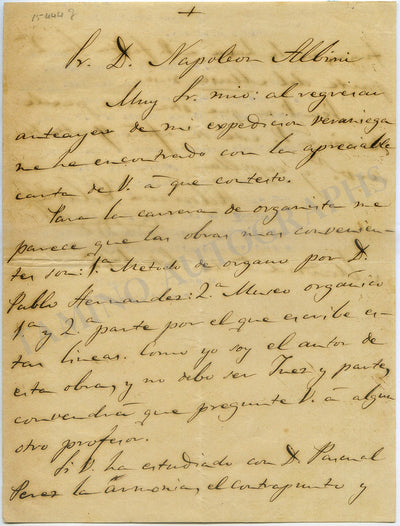 15444 J
+
Sr. D. Napoleon Albini
Muy Sr. mio: al regresar
anteayer de mi expedicion veraniega
me he encontrado con la apreciable
carta de V. á que contesto.
Para la carrera de organista me
parece que las obras mas convenien-
tes son: 1.ª Metodo de organo por D.
Pablo Hernandez: 2.ª Museo orgánico
1.ª y 2.ª parte por el que escribe es-
tas lineas. Como yo soy el autor de
esta obra, y no debo ser Juez y parte,
convendrá que pregunte V. á algun
otro profesor.
Si V. ha estudiado con D. Pascual
Perez la armonia, el contrapunto y
TAMINO AUTOGRAPHS